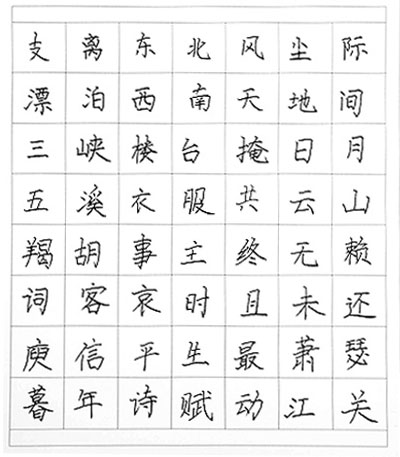 支离东北风尘际
漂泊西南天地间
三峡楼台掩日月
五溪衣服共云山
羯胡事主终无赖
词客哀时且未还
庾信平生最萧瑟
暮年诗赋动江关